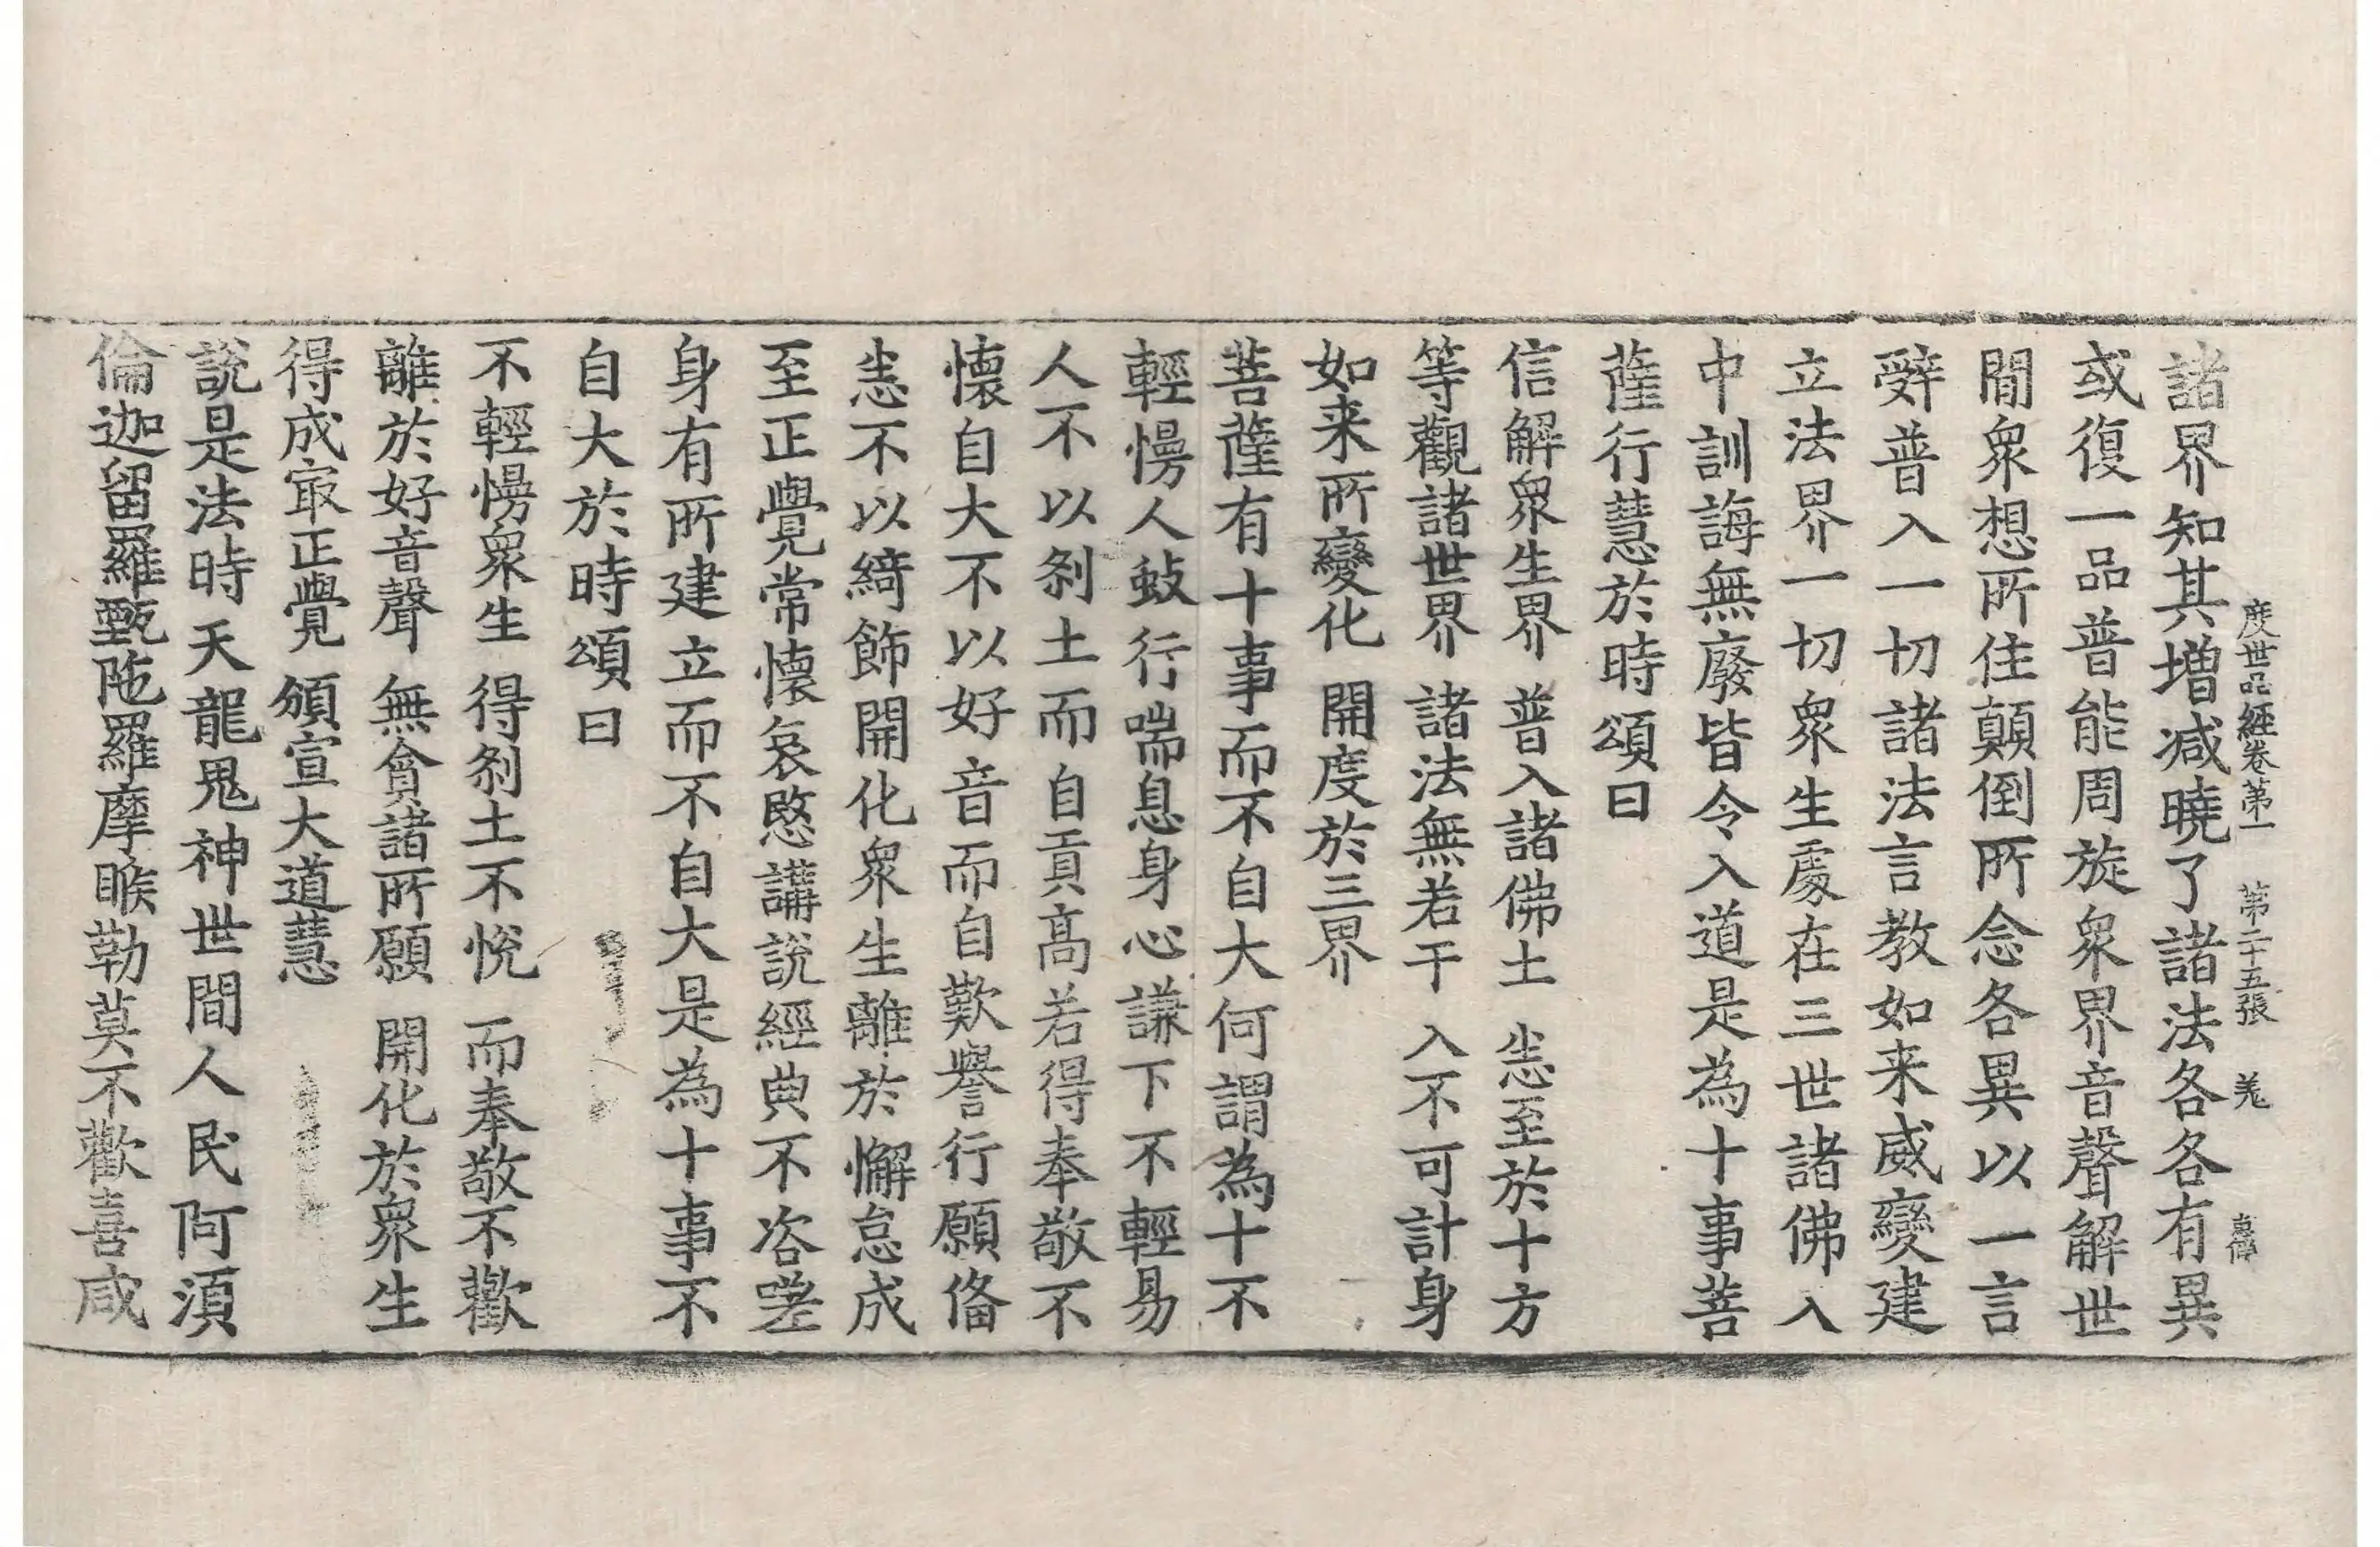 度世品經卷第一 第二十五張 羗
諸界知其增减曉了諸法各各有異
或復一品普能周旋衆界音聲解世
間衆想所住顛倒所念各異以一言
辤普入一切諸法言教如来威變建
立法界一切衆生處在三世諸佛入
中訓誨無廢皆令入道是為十事菩
薩行慧於時頌曰
信解衆生界 普入諸佛土 恙至於十方
等觀諸世界 諸法無若干 入不可計身
如来所變化 開度於三界
菩薩有十事而不自大何謂為十不
輕慢人蚑行喘息身心謙下不輕易
人不以剎土而自貢高若得奉敬不
懷自大不以好音而自歎譽行願俻
恙不以綺飾開化衆生離於懈怠成
至正覺常懷哀愍講說經典不咨嗟
身有所建立而不自大是為十事不
自大於時頌曰
不輕慢衆生 得剎土不悅 而奉敬不歡
離於好音聲 無貪諸所願 開化於衆生
得成㝡正覺 頒宣大道慧
說是法時天龍鬼神世間人民阿須
倫迦留羅甄陁羅摩睺勒莫不歡喜咸